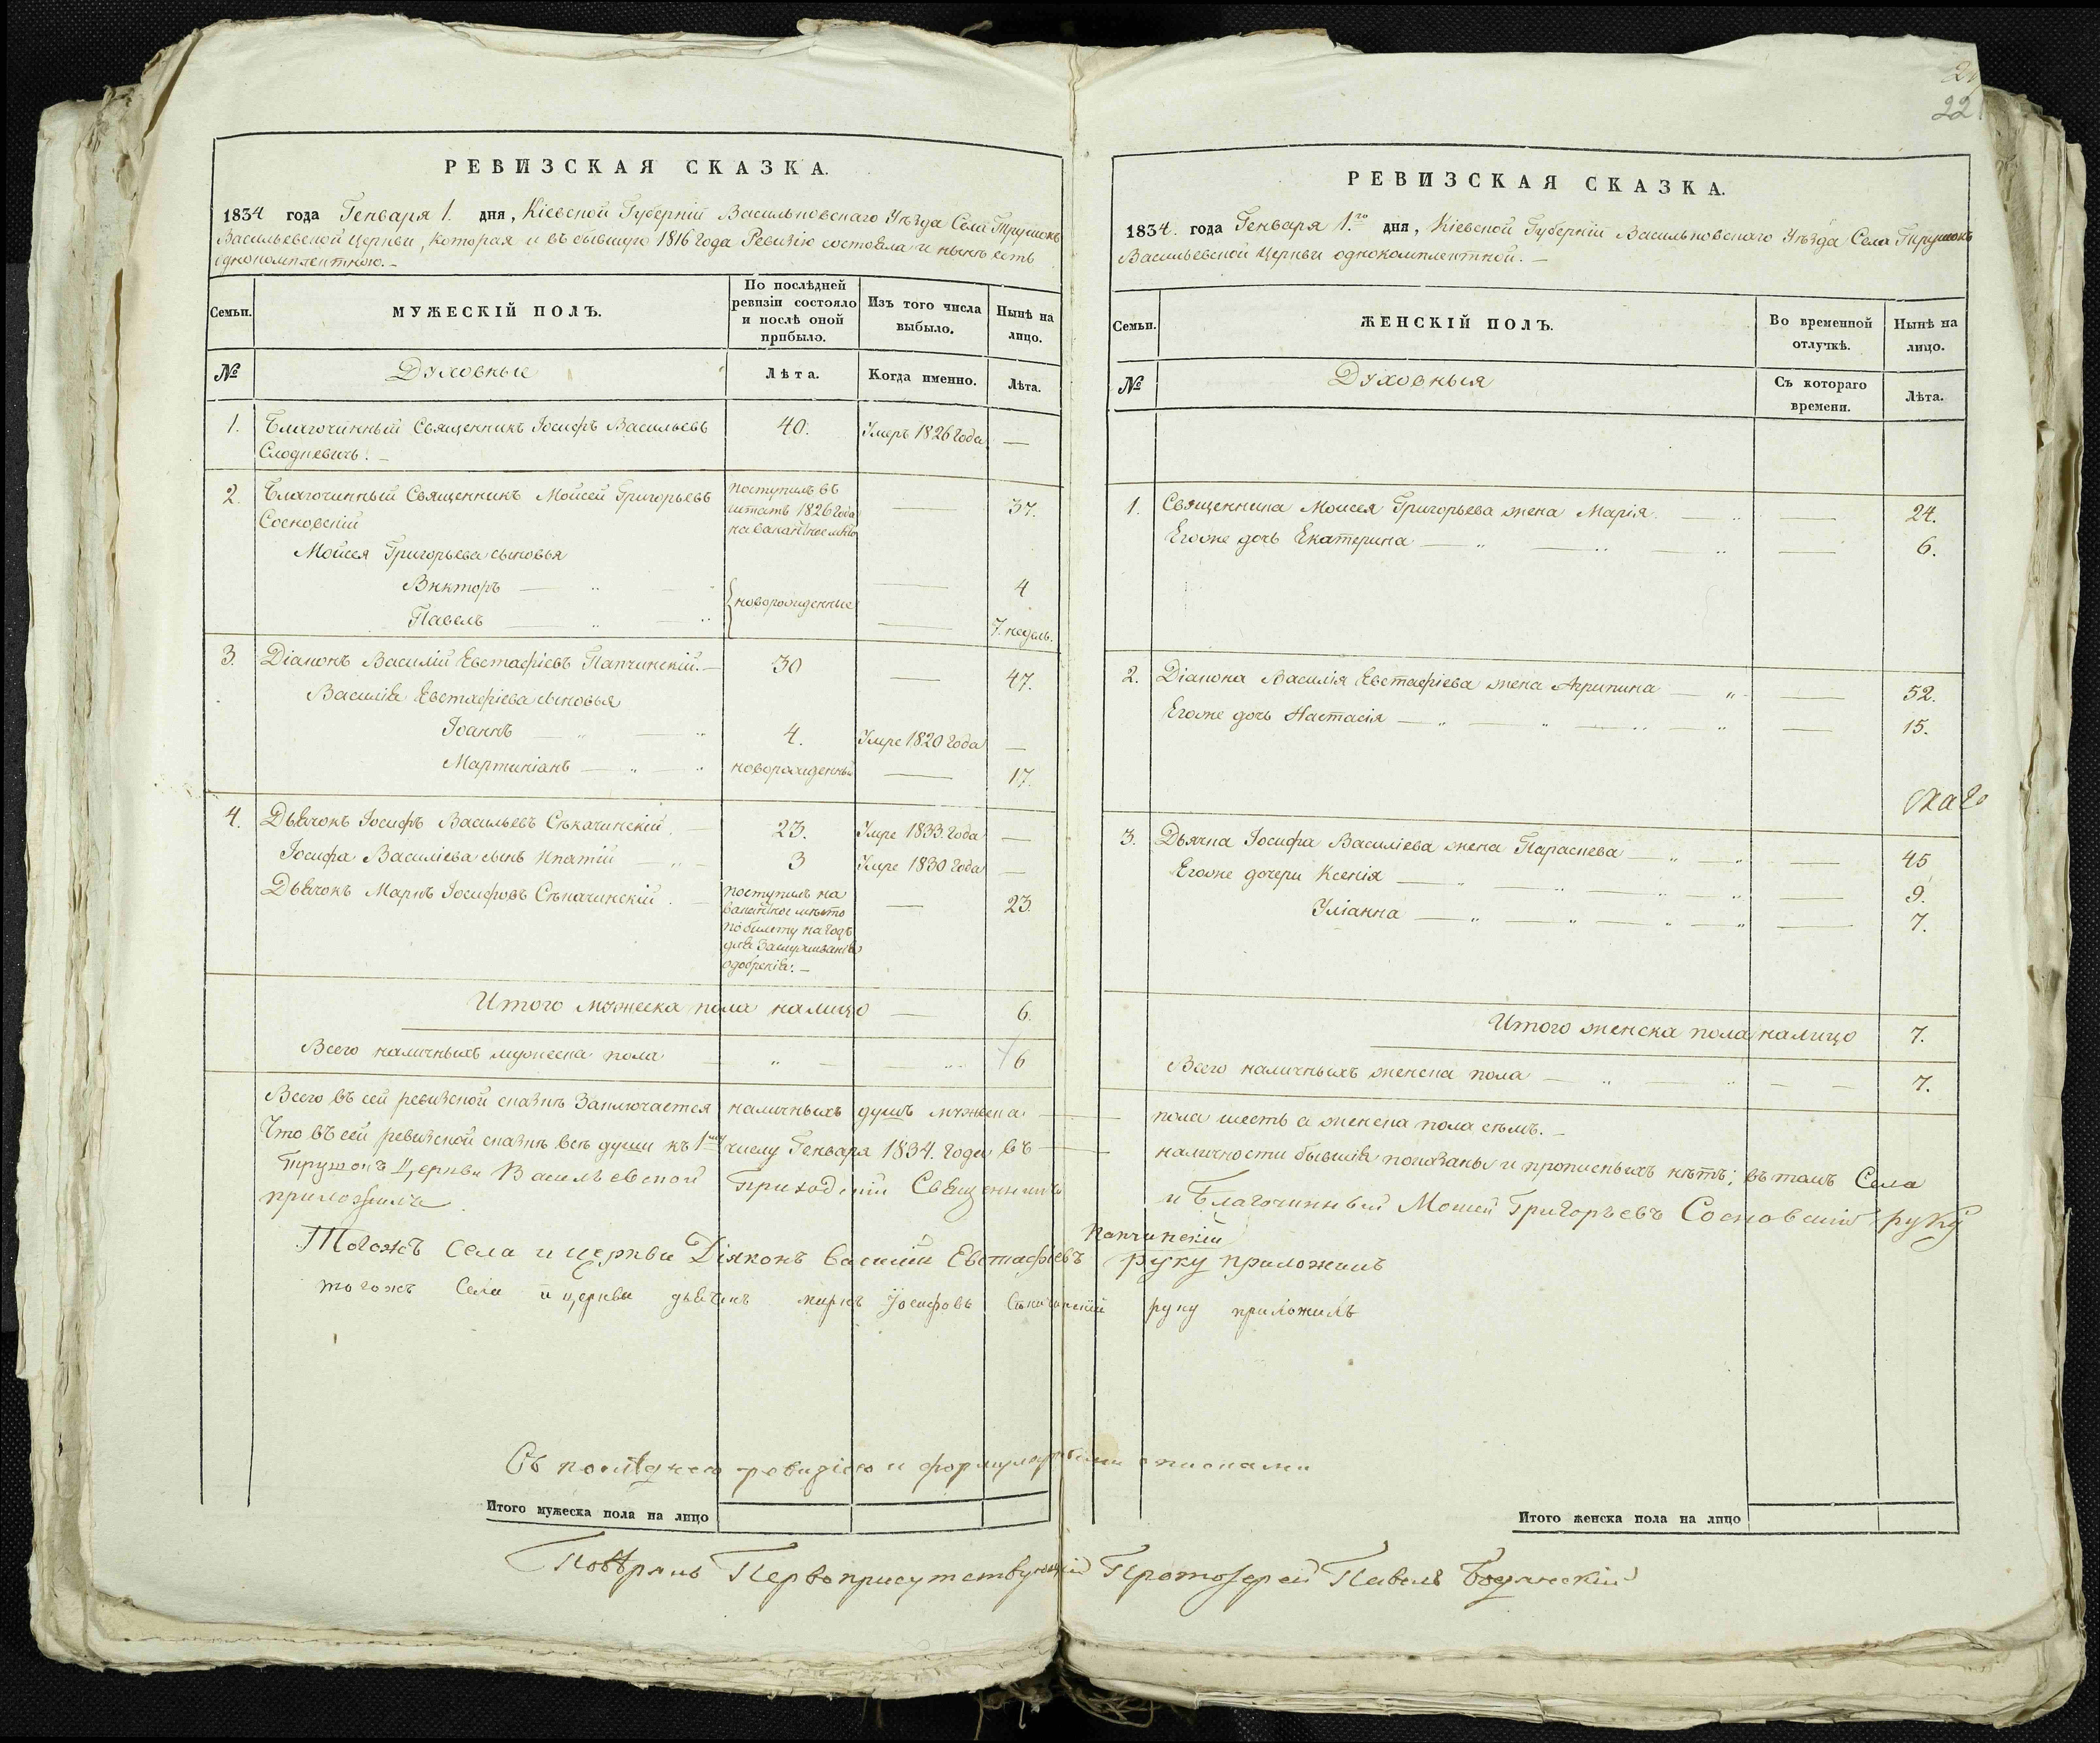 РЕВИЗСКАЯ СКАЗКА.
1834 года Генваря 1. дня, Кіевской Губерніи Васильковскаго Уѣзда Села Трушокъ
Васильевской Церкви, которая и въ бывшую 1816 года Ревизію состояла и нынѣ есть
однокомплектною.
Семьи.
МУЖЕСКІЙ ПОЛЪ.
По послѣдней ревизіи состояло и послѣ оной прибыло.
Изъ того числа выбыло.
Нынѣ на лицо.
№
Духовные
Лѣта.
Когда именно.
Лѣта.
1. Благочинный Священникъ Іосифъ Васильевъ 40. Умеръ 1826 года —
2. Благочинный Священникъ Моисей Григорьевъ поступилъ въ
Сосновскій штатъ 1826 года — 37.
Моисея Григорьева сыновья
Викторъ — „ — 4
новорожденные
Павелъ — „ — 7. недѣль.
3. Діаконъ Василій Евстафіевъ Папчинскій. — 30 — 47.
Василія Евстафіева сыновья
Іоаннъ — „ — 4. Умре 1820 года —
Мартиніанъ — „ — новорожденный — 17.
4. Дьячокъ Іосифъ Васильевъ Сѣкачинскій 23. Умре 1833. года —
Іосифа Василіева сынъ Ипатій — „ — 3 Умре 1830 года —
Дьячокъ Маркъ Іосифовъ Сѣкачинскій . — поступилъ на — 23.
вакантное мѣсто
по билету на годъ
для заслуживанія
одобренія. —
Итого мужеска пола налицо — 6.
Всего наличныхъ мужеска пола — „ — 6
Всего въ сей ревизской сказкѣ заключается наличныхъ душъ мужеска —
Что въ сей ревизской сказкѣ всѣ души къ 1му числу Генваря 1834. года въ —
Трушокъ Церкви Васильевской Приходскій Священникъ
приложилъ
Тогожъ Села и церкви Діяконъ Василій Евстафіевъ
тогожъ Села и церкви дьячекъ маркъ Іосифовъ Сѣкачинскій
Съ послѣднею ревизіею и формулярными списками
Итого мужеска пола на лицо
Повѣрялъ Первоприсутствующій
22
РЕВИЗСКАЯ СКАЗКА.
1834. года Генваря 1.го дня, Кіевской Губерніи Васильковскаго Уѣзда Села Трушокъ
Васильевской Церкви однокомплектной. —
Семьи.
ЖЕНСКІЙ ПОЛЪ.
Во временной отлучкѣ.
Нынѣ на лицо.
№
Духовныя
Съ котораго времени.
Лѣта.
1. Священника Моисея Григорьева жена Марія — „ — 24.
Егоже дочь Екатерина — „ — „ — „ — 6.
2. Діакона Василія Евстафіева жена Агрипина — „ — 52.
Егоже дочь Настасія — „ — „ — „ — 15.
3. Дьячка Іосифа Василіева жена Параскева „ — „ — 45
Егоже дочери Ксенія — „ — „ — „ — 9.
Уліанна — „ — „ — „ — 7.
Итого женска пола налицо 7.
Всего наличныхъ женска пола — „ — 7.
пола шесть а женска пола семъ. —
наличности бывшія показаны и прописныхъ нѣтъ; въ томъ Села
и Благочинный Моисей Григорьевъ Сосновскій руку
Папчинскій
руку приложилъ
руку приложилъ
Итого женска пола на лицо
Протоіерей Павелъ